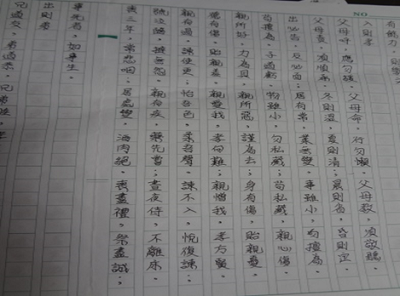 NO
有餘力．則學
入則孝
父母呼．應勿緩．父母命．行勿懶．父母教．須敬聽．
父母責．須順承．冬則溫．夏則凊．晨則省．昏則定．
出必告．反必面．居有常．業無變．事雖小．勿擅為．
苟擅為．子道虧．物雖小．勿私藏．苟私藏．親心傷．
親所好．力為具．親所惡．謹為去．身有傷．貽親憂．
德有傷．貽親羞．親愛我．孝何難．親憎我．孝方賢．
親有過．諫使更．怡吾色．柔吾聲．諫不入．悅復諫．
號泣隨．撻無怨．親有疾．藥先嘗．晝夜侍．不離床．
喪三年．常悲咽．居處變．酒肉絕．喪盡禮．祭盡誠．
事死者．如事生．
出則弟
兄道友．弟道恭．兄弟睦．